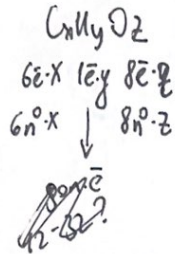 CxHyOz
6ē·x 1ē·y 8ē·z
6n⁰·x 8n⁰·z